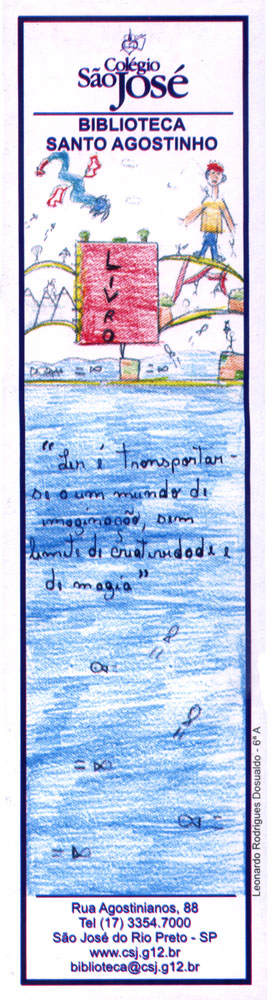 Colégio
São José
BIBLIOTECA
SANTO AGOSTINHO
LIVRO
"Ler é transportar-
se a um mundo de
imaginação, sem
limite de criatividade e
de magia"
Leonardo Rodrigues Dosualdo - 6ª A
Rua Agostinianos, 88
Tel (17) 3354.7000
São José do Rio Preto - SP
www.csj.g12.br
biblioteca@csj.g12.br